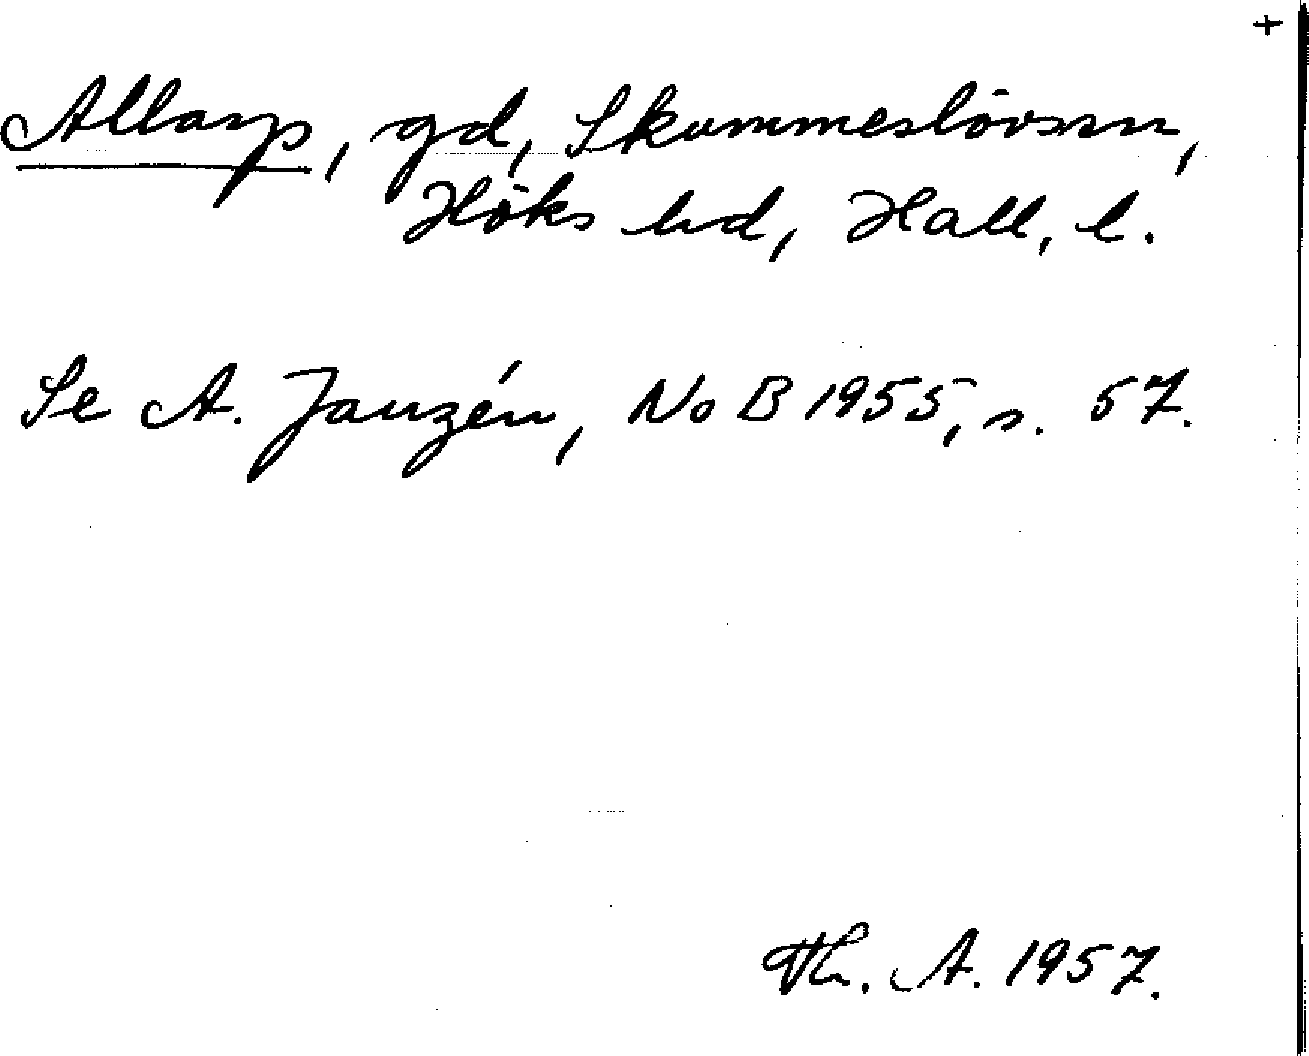 +
Allarp, gd, Skummeslövs sn,
Höks hd, Hall. l.
Se A. Janzén, NoB 1955, s. 57.
Th. A. 1957.